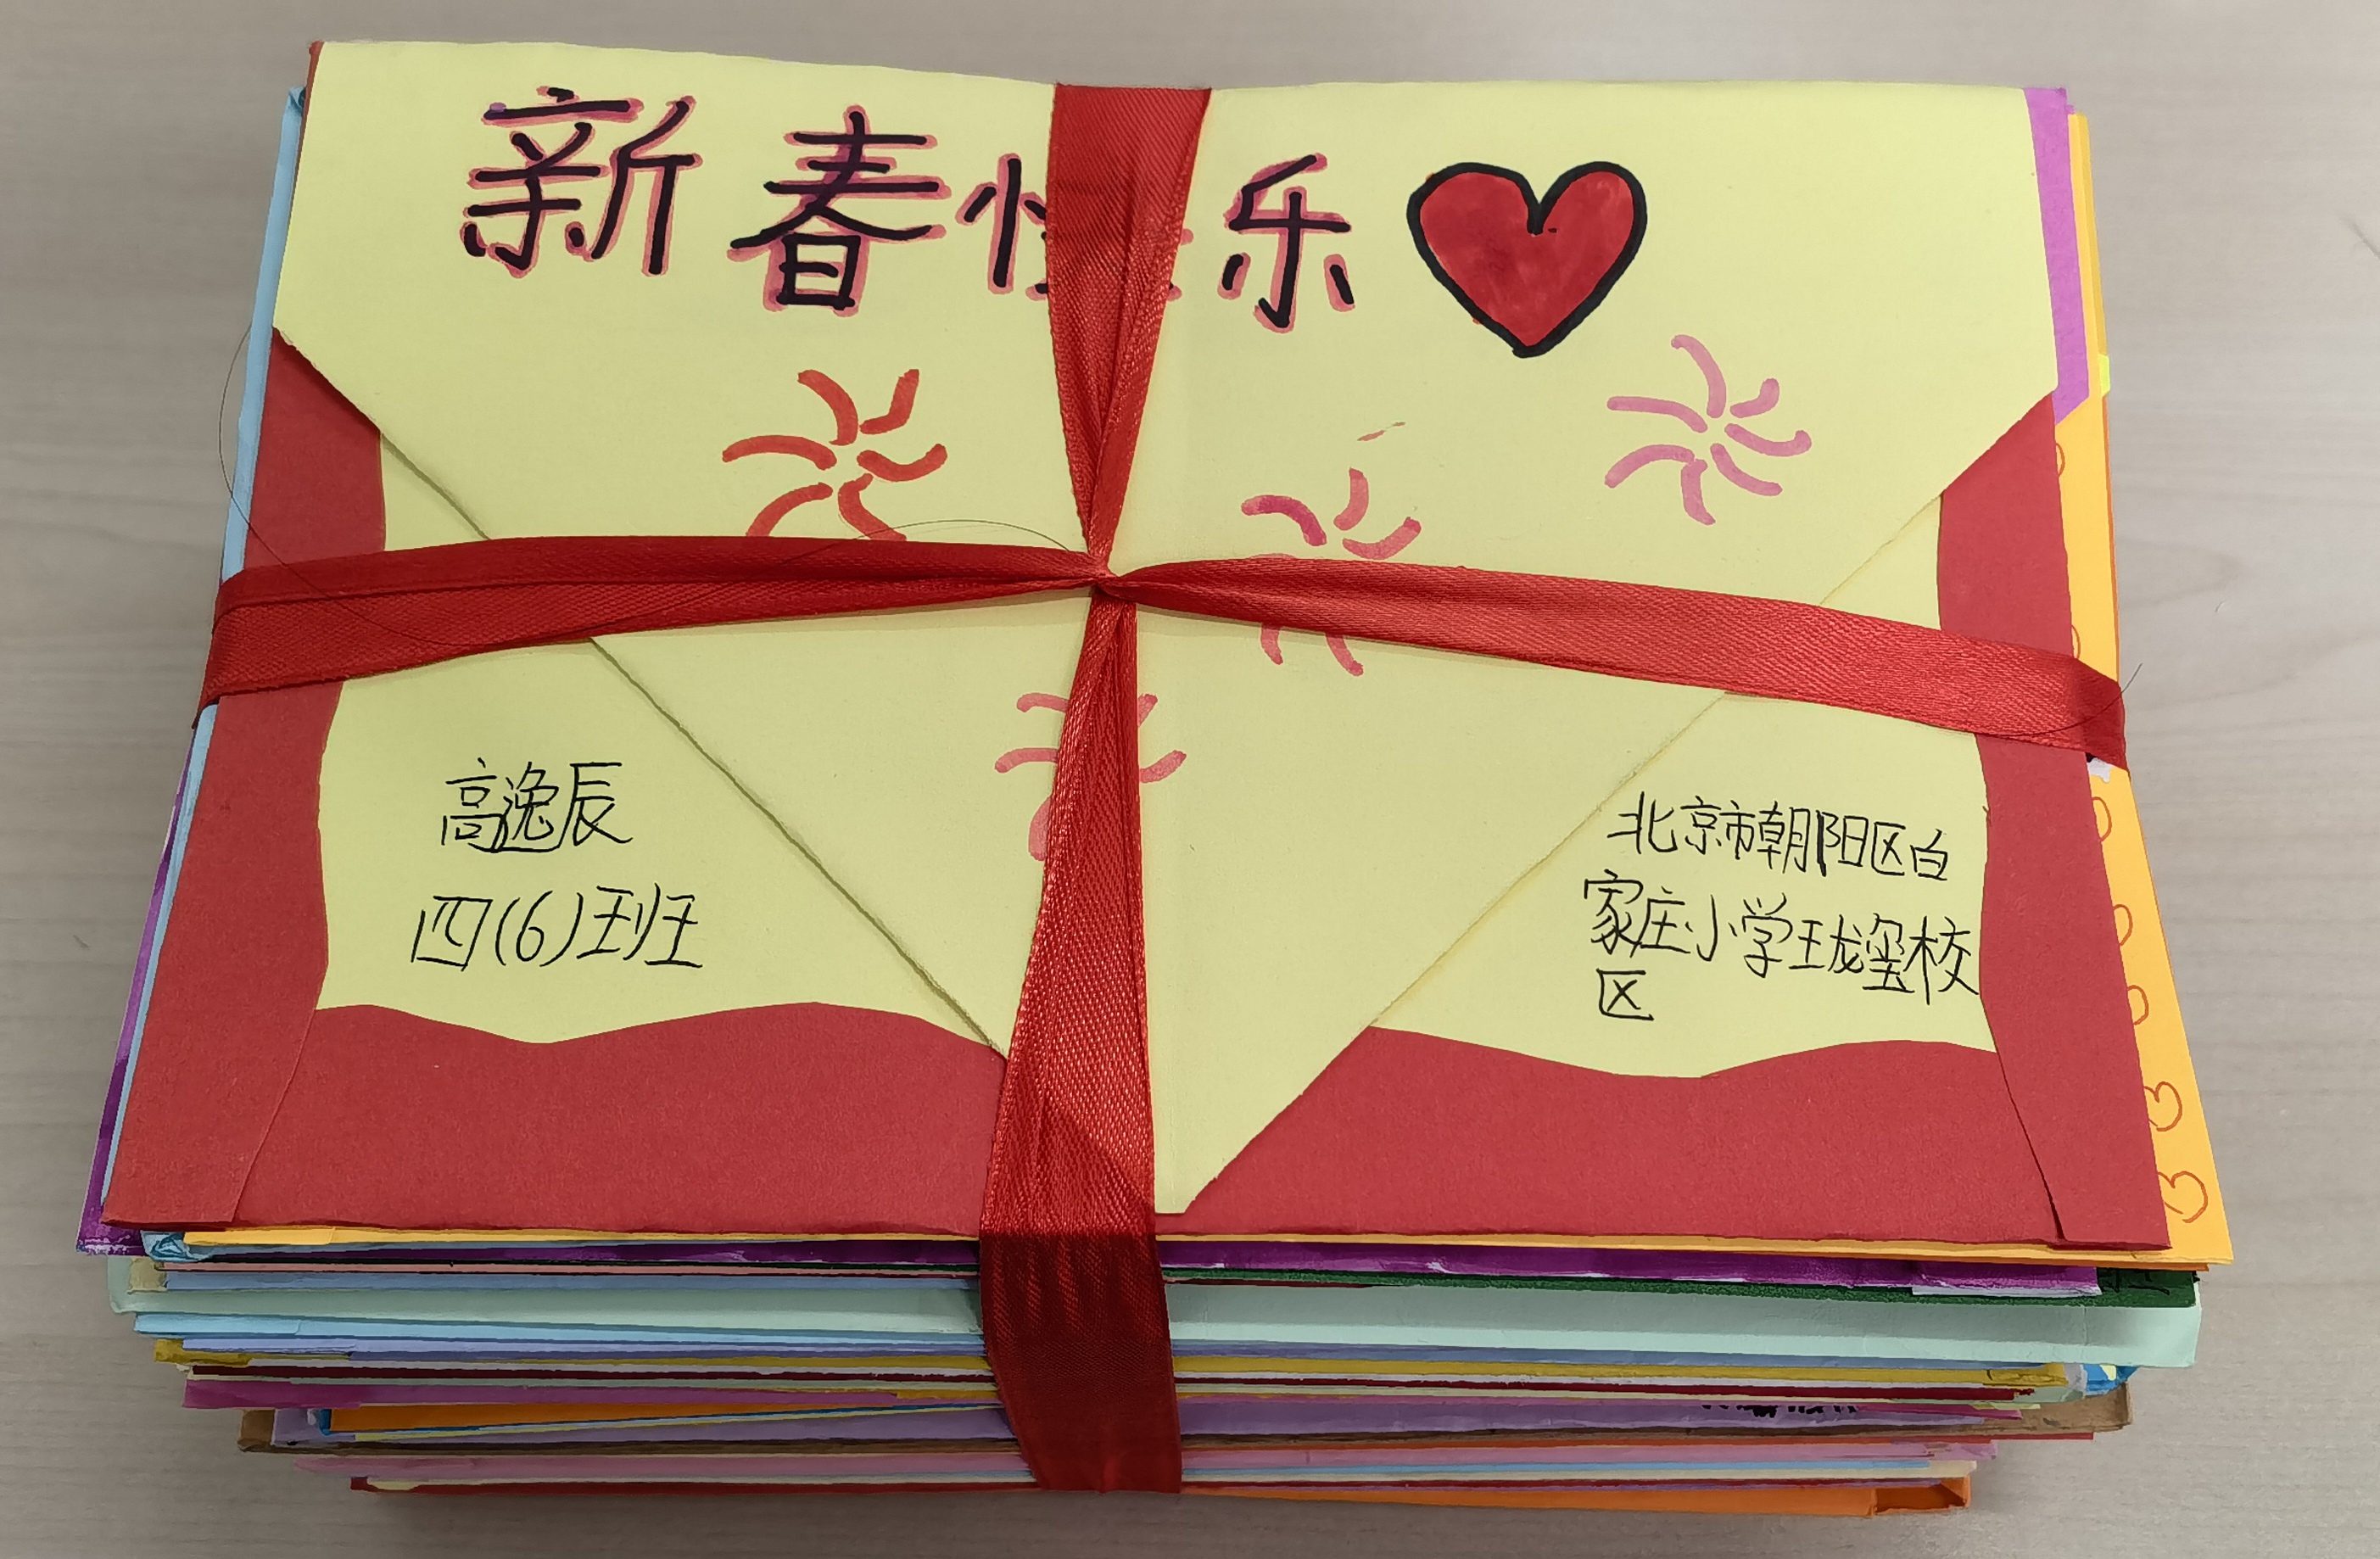 新春快乐
高逸辰
四(6)班
北京市朝阳区白
家庄小学珑玺校
区